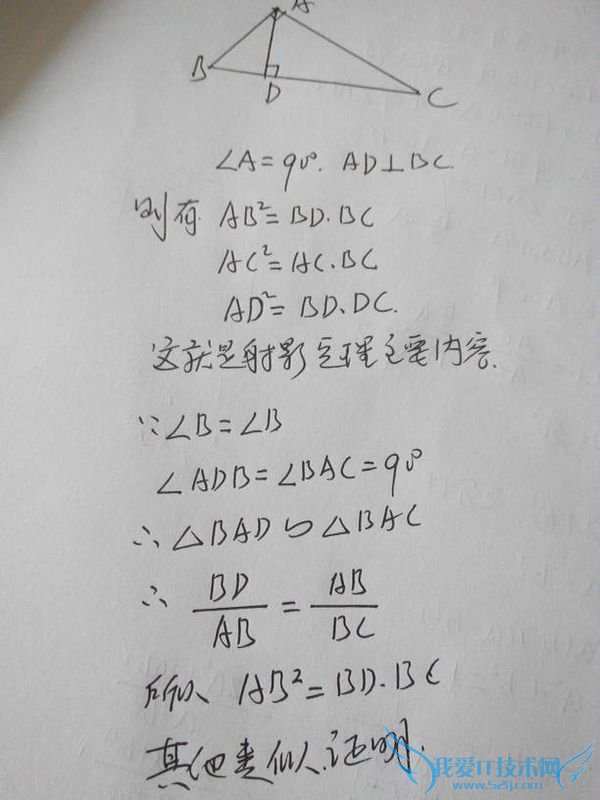 A
B
D
C
∠A=90°. AD⊥BC.
则有 AB²=BD.BC
AC²=AC.BC
AD²=BD.DC.
这就是射影定理主要内容.
∵∠B=∠B
∠ADB=∠BAC=90°
∴△BAD∽△BAC
∴ BD/AB = AB/BC
所以 AB²=BD.BC
其他类似证明.
我爱IT技术网
www.52ij.com